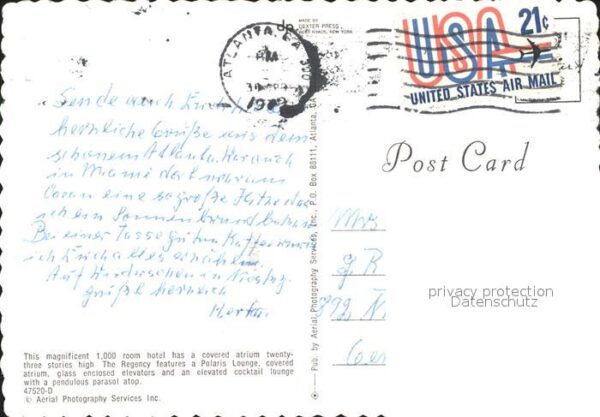 MADE BY
DEXTER PRESS
WEST NYACK, NEW YORK
ATLANTA, GA
PM
30 APR
USA 21c
UNITED STATES AIR MAIL
Post Card
Sende auch Euch
herzliche Grüße aus dem
schönem Atlanta. War auch
in Miami dort
eine so große Hitze das
ich ein Sonnenbrand
Bei einer Tasse guten Kaffee
ich Euch alles erzählen.
Auf Wiedersehen in
grüßt herzlich
Herta.
Mrs
privacy protection
Datenschutz
This magnificent 1,000 room hotel has a covered atrium twenty-
three stories high The Regency features a Polaris Lounge, covered
atrium, glass enclosed elevators and an elevated cocktail lounge
with a pendulous parasol atop.
47520-D
© Aerial Photography Services Inc.
Pub. by Aerial Photography Services, Inc., P.O. Box 88111, Atlanta, GA